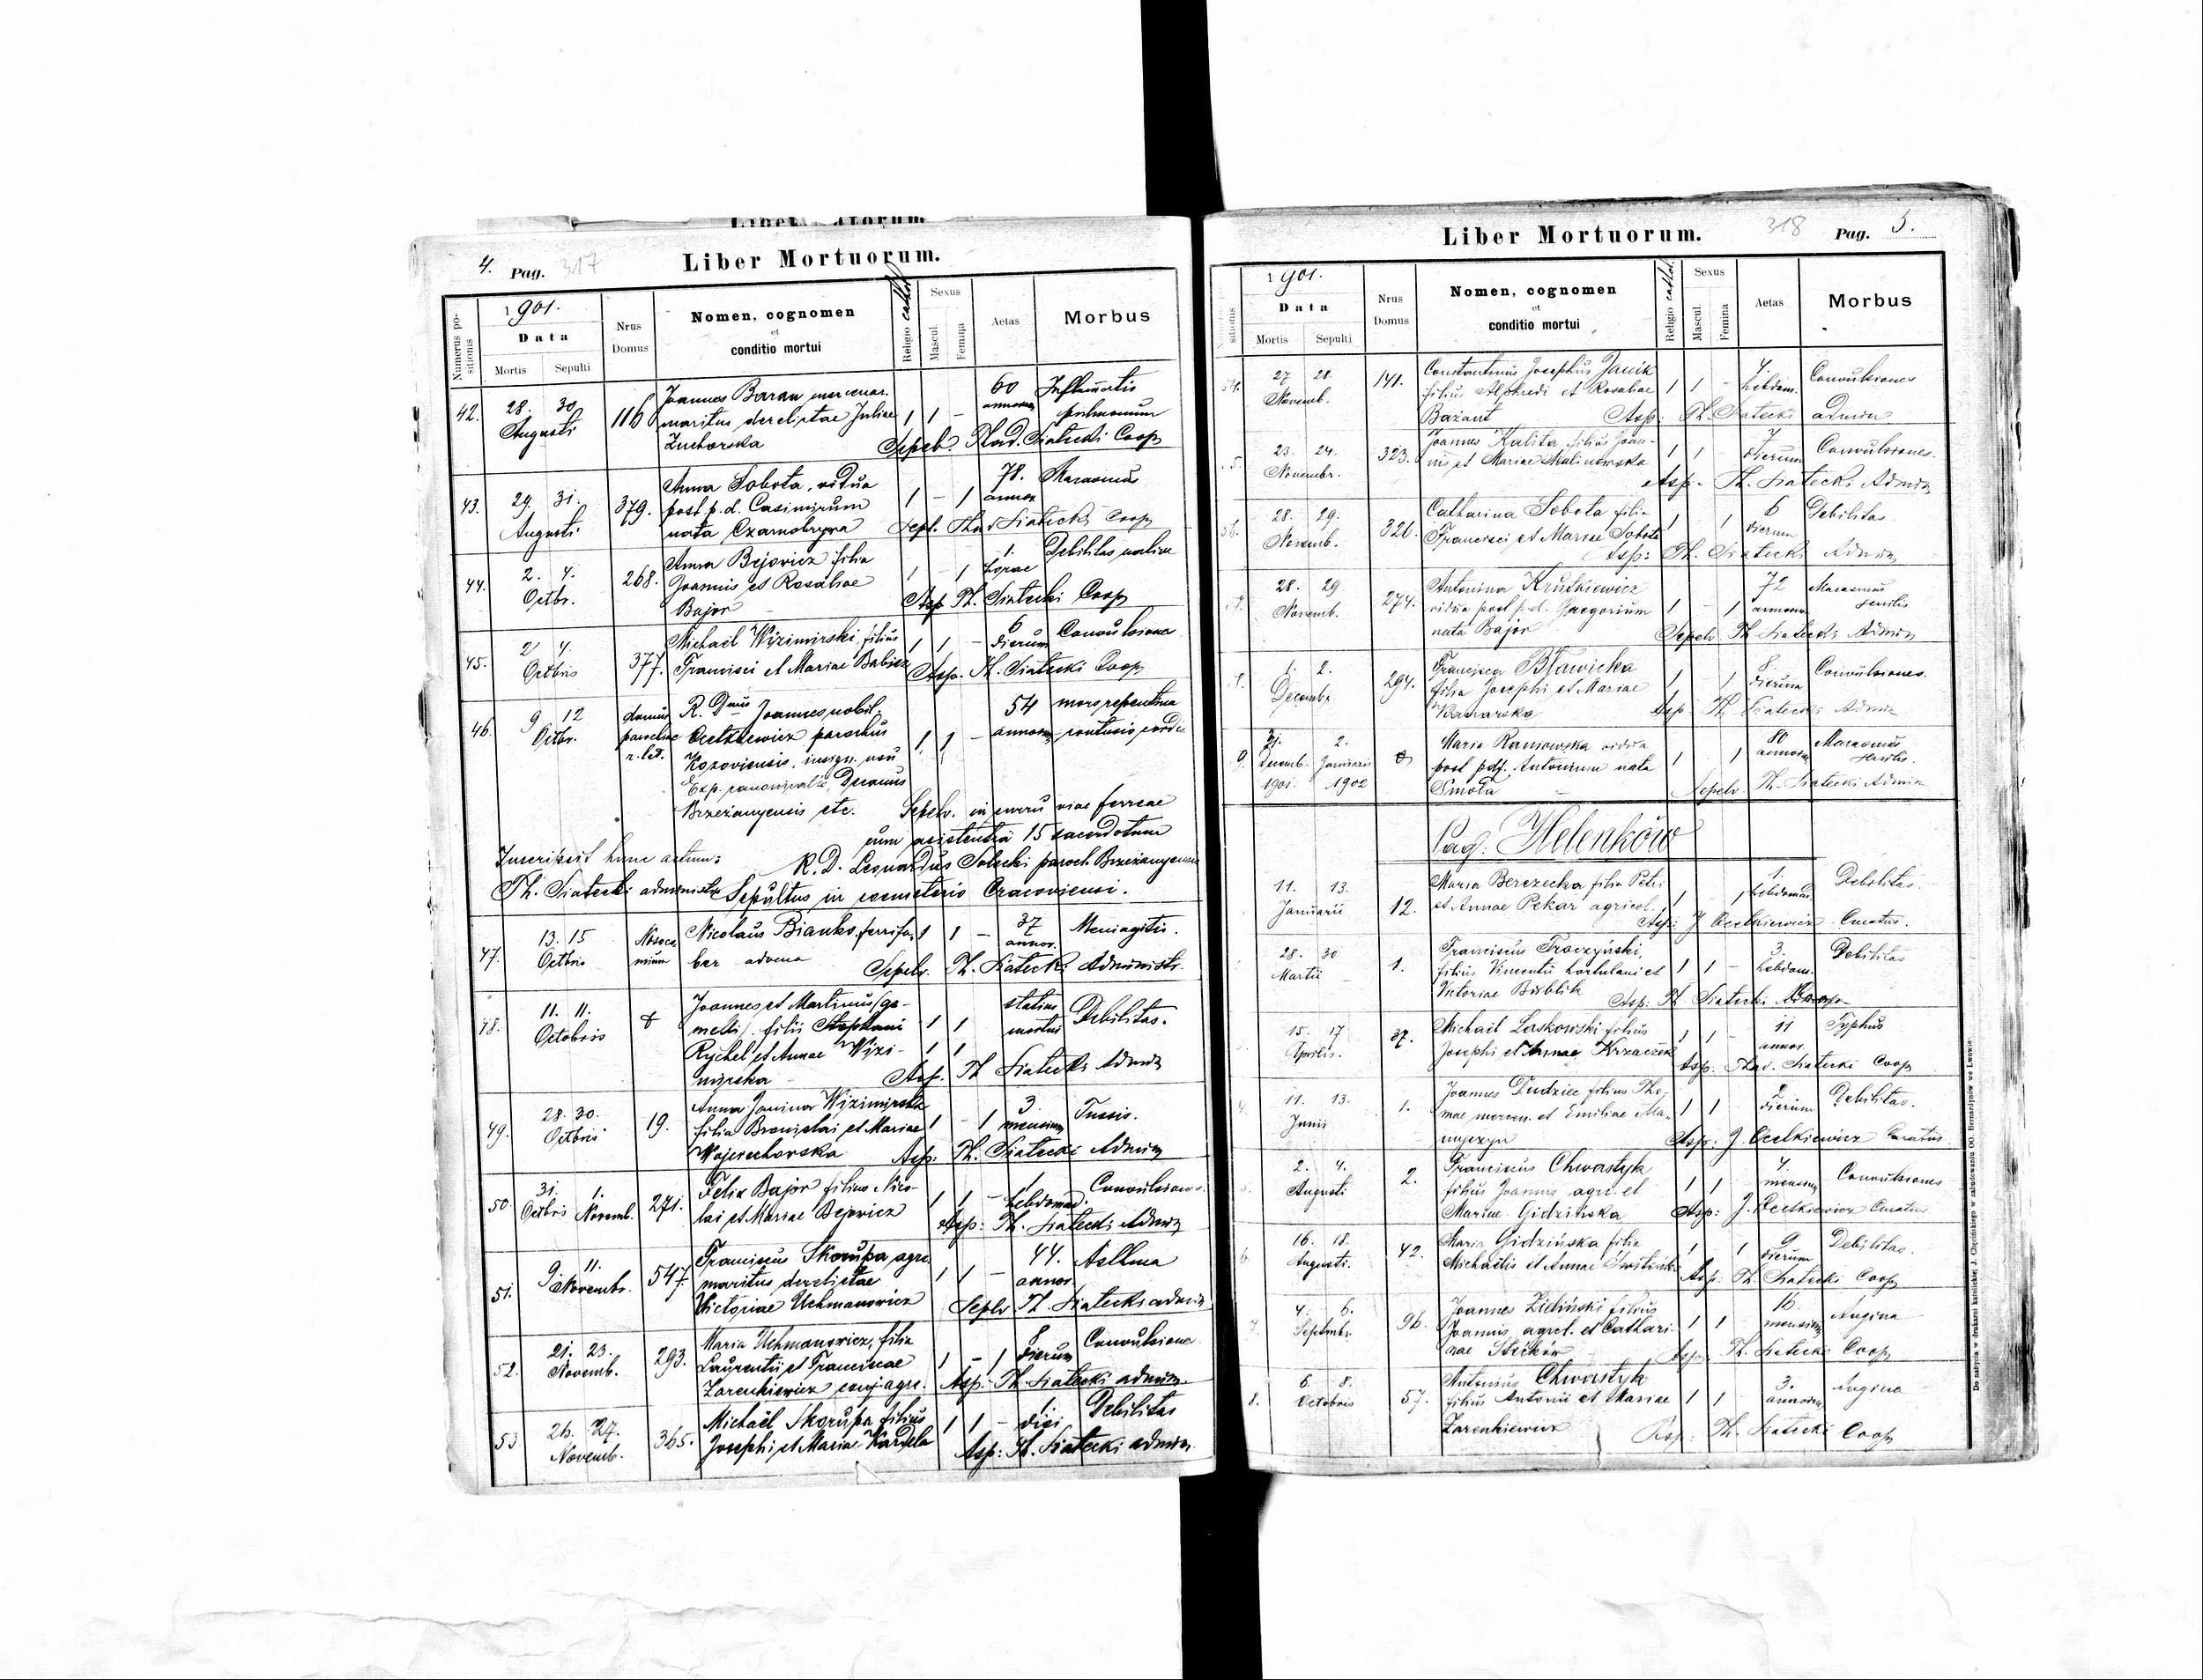 4. Pag. 317 Liber Mortuorum.
Numerus positionis
1901.
Data
Mortis Sepulti
Nrus Domus
Nomen, cognomen
et
conditio mortui
Religio cathol.
Sexus
Mascul. Femina
Aetas
Morbus
42. 28. 30. Augusti 116 Joannes Baran mercenar. 1 1 - 60 annorum
maritus derelictae Juliae pulmonum
Zuchorska Sepel. Thad. Siatecki Coop
43. 29. 31. Augusti 379. Anna Sobota, vidua 1 - 1 78. annor Marasmus
post p.d. Casimirum
nata Czarnobrywa Sepel. Thad Siatecki Coop
44. 2. 4. Octbr. 268. Anna Bejowicz filia 1 - 1 1. horae Debilitas
Joannis et Rosaliae
Bajor Asp Th. Siatecki Coop
45. 2 4. Octbris 377. Michael Wizimirski, filius 1 1 - 6 dierum
Francisci et Mariae Babicz Asp. Th. Siatecki Coop
46. 9 12 Octbr. domus R. Dnus Joannes nobil. 1 1 - 54 annorum mors repentina
Ocetkiewicz parochus
Kozoviensis, insign. usu
Exp. canonicalis, Decanus
Brzeżanyensis etc. Sepelv. in curru viae ferreae
cum asistentia 15 sacerdotum
Inscripsit hunc actum: R. D. Leonardus Solecki paroch Brzeżanyensis
Th. Siatecki administr Sepultus in coemeterio Cracoviensi.
47. 13. 15 Octbris Nosocomium Nicolaus Bianko, ferrifa- 1 1 - 37 annor. Meningitis.
ber advena Sepelv. Th. Siatecki Administr.
48. 11. 11. Octobris Joannes et Martinus (ge- 1 1 statim mortui Debilitas.
melli) filii Stephani
Rychel et Annae Wizi- 1 1
mirska Asp. Th Siatecki Admin
49. 28. 30. Octbris 19. Anna Janina Wizimirska 1 - 1 3. mensium Tussis.
filia Bronislai et Mariae
Wojciechowska Asp: Th. Siatecki Admin
50. 31. Octbris 1. Novemb. 271. Felix Bajor filius Nico- 1 1 - 1 hebdomad. Convulsiones.
lai et Mariae Bejowicz Asp: Th. Siatecki Admin
51. 9. 11. Novembr. 547. Franciscus Skorupa agric. 1 1 - 44. annor Asthma
maritus derelictae
Victoriae Uchmanowicz Sepelv Th. Siatecki admin
52. 21. 23. Novemb. 293. Maria Uchmanowicz, filia 1 - 1 8 dierum
Laurentii et Franciscae
Zarenkiewicz conj. agric. Asp. Th. Siatecki admin
53 26. 27. Novemb. 365. Michaël Skorupa filius 1 1 - 1. diei Debilitas
Josephi et Maria Kardela Asp: Th. Siatecki admin
Liber Mortuorum. 318 Pag. 5.
1901.
Data
Mortis Sepulti
Nrus Domus
Nomen, cognomen
et
conditio mortui
Religio cathol.
Sexus
Mascul. Femina
Aetas
Morbus
54. 27 28. Novemb. 141. Constantinus Josephus Janik 1 1 - 7. hebdom. Convulsiones
filius Alphredi et Rosaliae
Bażant Asp: Th. Siatecki admin
5. 23. 24. Novembr. 323. Joannes Kalita filius Joan- 1 1 - 7 dierum Convulsiones.
nis et Mariae Malinowska Asp. Th. Siatecki Admin
56. 28. 29. Novemb. 326. Catharina Sobota filia 1 1 6 dierum Debilitas.
Francisci et Mariae Sobota
Asp: Th. Siatecki Admin
7. 28. 29 Novemb. 274. Antonina Krutkiewicz 1 - 1 72 annorum Marasmus senilis
vidua post p.d. Gregorium
nata Bajor Sepelv Th Siatecki Admin
1. 2. Decembr 294. Francisca Bławicka 1 1 8. dierum Convulsiones.
filia Josephi et Mariae
Kanarska Asp Th Siatecki Admin
9. 31. Decemb. 1901. 2. Januarii 1902 Maria Romowska vidua 1 1 80 annorum Marasmus senilis.
post pdf. Antonium nata
Smota Sepelv Th. Siatecki Admin
Pag. Helenków
11. 13. Januarii 12. Maria Berezecka filia Petri 1 1 1. hebdomad. Debilitas.
et Annae Pekar agricol. Asp: J Ocetkiewicz Curatus.
28. 30 Martii 1. Franciscus Traczyński, 1 1 - 3. hebdom. Debilitas
filius Vincentii hortulani et
Victoriae Asp. Th Siatecki
15. 17 Aprilis. 37. Michaël Laskowski filius 1 1 - 11 annor. Typhus
Josephi et Annae Krzaczek Asp. Thad. Siatecki Coop
4. 11. 13. Junii 1. Joannes Dudziec filius Tho- 1 1 2 dierum Debilitas.
mae mercen. et Emiliae Ma-
Asp: J. Ocetkiewicz Curatus
2. 4. Augusti 2. Franciscus Chwastyk 1 1 4. mensium Convulsiones
filius Joannis agric. et
Mariae Gidzińska Asp: J. Ocetkiewicz Curatus
6. 16. 18. Augusti. 42. Maria Gidzińska filia 1 1 9 dierum Debilitas.
Michaëlis et Annae Asp Th. Siatecki Coop
7. 4. 6. Septmbr. 96. Joannes Zieliński filius 1 1 16. mensium Angina
Joannis agricol. et Cathari-
nae Asp. Th. Siatecki Coop
8. 6. 8. Octobris 57. Antonius Chwastyk 1 1 3. annorum Angina
filius Antonii et Mariae
Zarenkiewicz Asp: Th. Siatecki Coop
Do nabycia w drukarni katolickiej J. Chęcińskiego w zabudowaniu OO. Bernardynów we Lwowie.